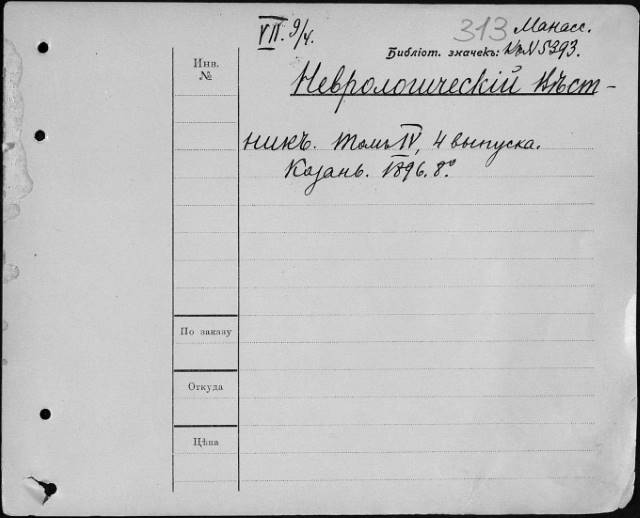 VII. 9/4.
313 Манасс.
Библіот. значекъ: № 5393.
Инв. №
Неврологическій Вѣст-
никъ. Томъ IV, 4 выпуска.
Казань. 1896. 8°.
По заказу
Откуда
Цѣна